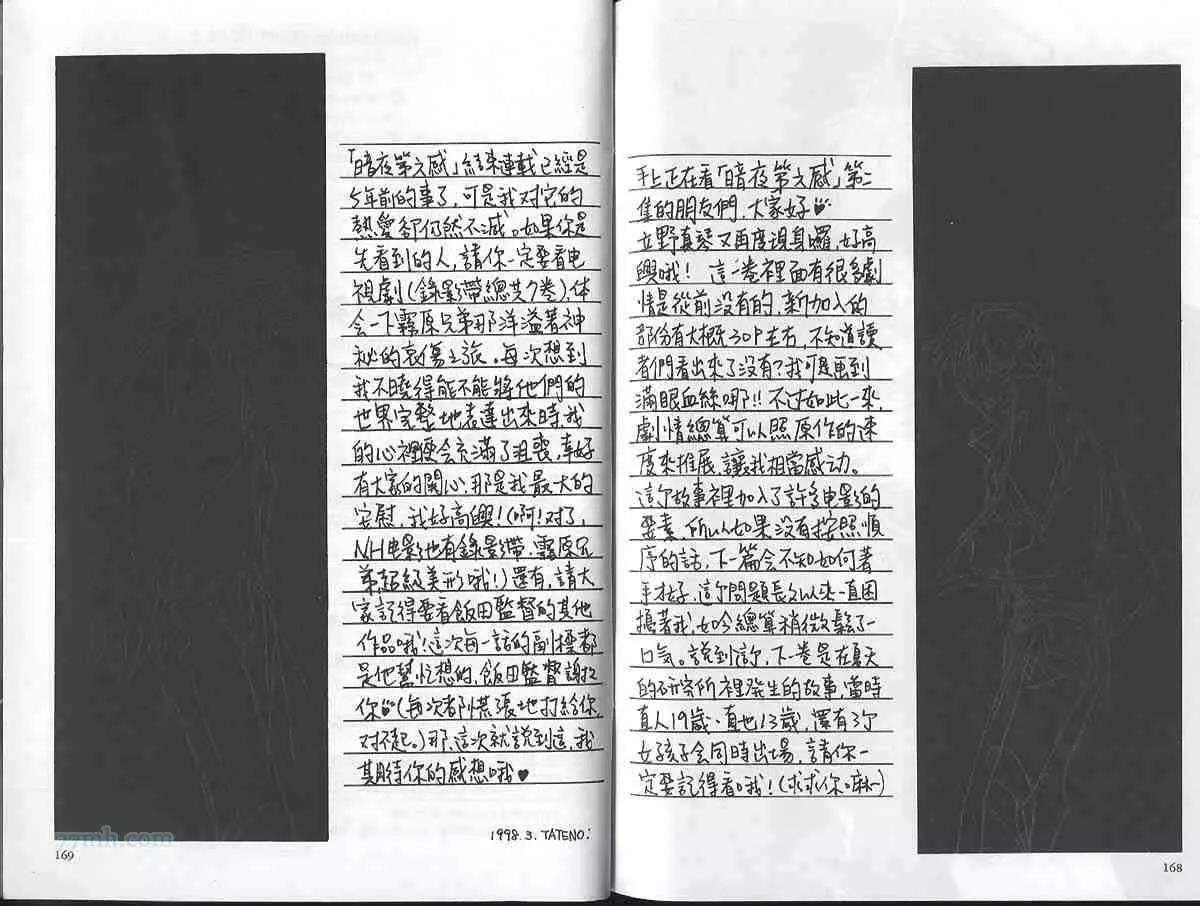 手上正在看「暗夜第六感」第二
集的朋友們，大家好
立野真琴又再度現身囉，好高
興哦！ 這一卷裡面有很多劇
情是從前没有的，新加入的
部份有大概30P左右，不知道讀
者們看出來了没有？我可是畫到
滿眼血絲哪!! 不过如此一來，
劇情總算可以照原作的速
度來推展，讓我相當感动。
這个故事裡加入了許多电影的
要素，所以如果没有按照順
序的話，下一篇会不知如何著
手才好，這个問題長久以來一直困
擾著我，如今總算稍微鬆了一
口氣。説到這，下一卷是在夏天
的研究所裡発生的故事，當時
真人19歲、直也13歲，還有3个
女孩子会同時出場，請你一
定要記得看哦！（求求你嘛～）
168
「暗夜第六感」結束連載已經是
5年前的事了，可是我对它的
熱愛卻仍然不減。如果你是
先看到的人，請你一定要看电
視劇（錄影帶總共7卷），体
会一下霧原兄弟那洋溢著神
秘的哀傷之旅。每次想到
我不曉得能不能將他們的
世界完整地表達出來時，我
的心裡便会充滿了沮喪，幸好
有大家的關心，那是我最大的
安慰，我好高興！（啊！对了，
NH电影也有錄影帶，霧原兄
弟超級美形哦！）還有，請大
家記得要看飯田監督的其他
作品哦！這次每一話的副標都
是他幫忙想的，飯田監督謝謝
你（每次都慌張地打給你，
对不起。）那，這次就説到這，我
其期待你的感想哦♥
1998.3. TATENO.
169
77mh.com